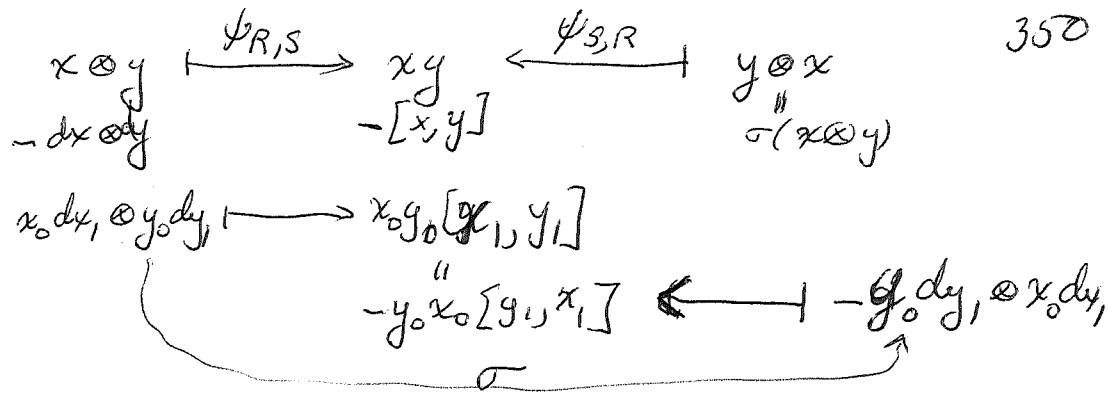 350
x ⊗ y ⟼ ψ_{R,S} xy ⟻ ψ_{S,R} y ⊗ x
- dx ⊗ dy - [x, y] " σ(x ⊗ y)
x_0 dx_1 ⊗ y_0 dy_1 ⟼ x_0 y_0 [x_1, y_1]
"
- y_0 x_0 [y_1, x_1] ⟻ - y_0 dy_1 ⊗ x_0 dx_1
σ